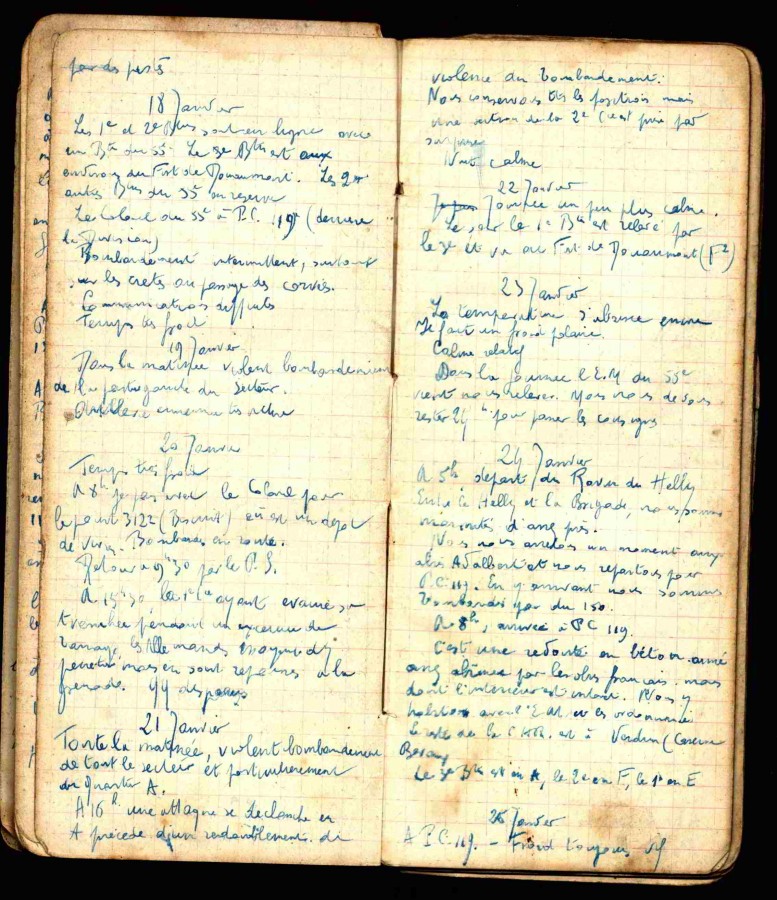 par des pertes
18 Janvier
Les 1e et 2e Btons sont en ligne avec
un Bton du 55e. Le 3e Bton est aux
environs du Fort de Douaumont. Les 2
autres Btons du 55e en reserve
Le Colonel du 55e à P.C. 119 (derrière
la Division)
Bombardement intermittent, surtout
sur les crêtes au passage des corvées.
Communications difficiles
Temps très froid
19 Janvier
Dans la matinée violent bombardement
de la partie gauche du Secteur.
Artillerie ennemie très active
20 Janvier
Temps très froid
A 8h je pars avec le Colonel pour
le point 3122 (Biscuit) où est un dépot
de vivres. Bombardés en route.
Retour à 9h30 par le P.S.
A 15h30, la 1e Cie ayant évacué sa
tranchée pendant un exercice de
barrage, les Allemands essayent d'y
pénétrer mais en sont repoussés à la
grenade.
21 Janvier
Toute la matinée, violent bombardement
de tout le secteur et particulièrement
du quartier A.
A 16h une attaque se déclanche en
A précédée d'un redoublement de
violence du bombardement.
Nous conservons très les positions mais
une section de la 2e Cie est prise par
surprise
Nuit calme
22 Janvier
Journée un peu plus calme.
Le soir le 1e Bton est relevé par
le 3e et va au Fort de Douaumont (F2)
23 Janvier
La température s'abaisse encore
Il fait un froid polaire.
Calme relatif
Dans la journée l'E.M. du 55e
vient nous relever. Mais nous devons
rester 24h pour passer les consignes
24 Janvier
A 5h, départ du Ravin du Helly
Entre le Helly et la Brigade, nous sommes
marmités d'assez près.
Nous nous arrêtons un moment aux
abris Adalbert et nous repartons pour
P.C. 119. En y arrivant nous sommes
bombardés par du 150.
A 8h, arrivée à P.C. 119.
C'est une redoute en béton armé
assez abîmée par les obus français mais
dont l'intérieur est intact. Nous y
habitons avec l'E.M. et les ordonnances
Le reste de la C.H.R. est à Verdun (Caserne
Le 3e Bton est en A, le 2e en F, le 1e en E
25 Janvier
A P.C. 119. - Froid toujours vif